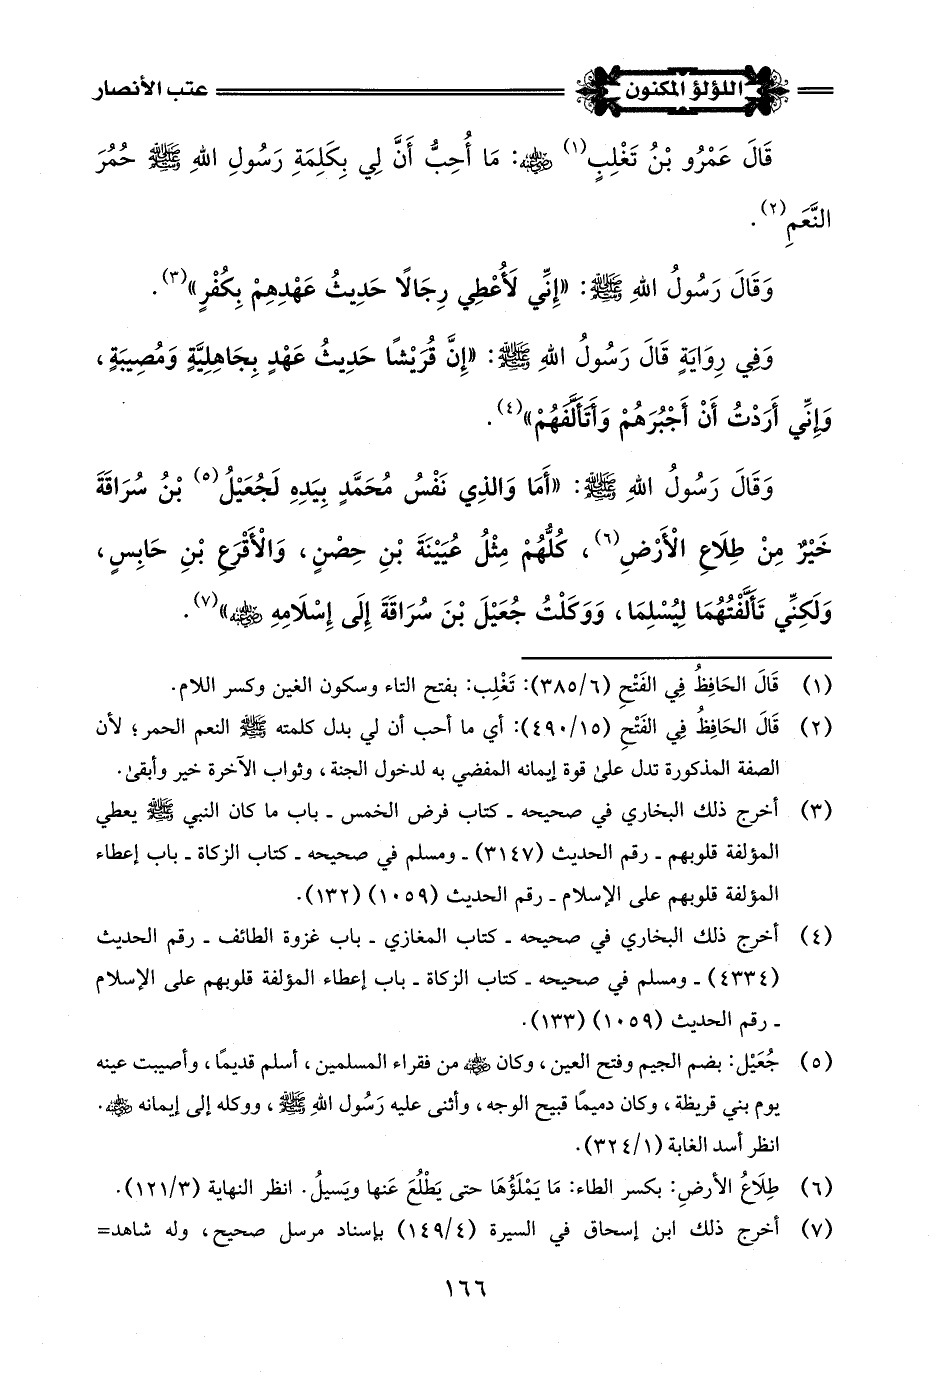 اللؤلؤ المكنون
عتب الأنصار
قَالَ عَمْرُو بْنُ تَغْلِبٍ(١) رضي الله عنه: مَا أُحِبُّ أَنَّ لِي بِكَلِمَةِ رَسُولِ اللهِ ﷺ حُمُرَ
النَّعَمِ(٢).
وَقَالَ رَسُولُ اللهِ ﷺ: «إِنِّي لَأُعْطِي رِجَالًا حَدِيثُ عَهْدِهِمْ بِكُفْرٍ»(٣).
وَفِي رِوَايَةٍ قَالَ رَسُولُ اللهِ ﷺ: «إِنَّ قُرَيْشًا حَدِيثُ عَهْدٍ بِجَاهِلِيَّةٍ وَمُصِيبَةٍ،
وَإِنِّي أَرَدْتُ أَنْ أَجْبُرَهُمْ وَأَتَأَلَّفَهُمْ»(٤).
وَقَالَ رَسُولُ اللهِ ﷺ: «أَمَا وَالذِي نَفْسُ مُحَمَّدٍ بِيَدِهِ لَجُعَيْلُ(٥) بْنُ سُرَاقَةَ
خَيْرٌ مِنْ طِلَاعِ الْأَرْضِ(٦)، كُلُّهُمْ مِثْلُ عُيَيْنَةَ بْنِ حِصْنٍ، وَالْأَقْرَعِ بْنِ حَابِسٍ،
وَلَكِنِّي تَأَلَّفْتُهُمَا لِيُسْلِمَا، وَوَكَلْتُ جُعَيْلَ بْنَ سُرَاقَةَ إِلَى إِسْلَامِهِ رضي الله عنه»(٧).
(١) قَالَ الحَافِظُ فِي الفَتْحِ (٣٨٥/٦): تَغْلِب: بفتح التاء وسكون الغين وكسر اللام.
(٢) قَالَ الحَافِظُ فِي الفَتْحِ (٤٩٠/١٥): أي ما أحب أن لي بدل كلمته ﷺ النعم الحمر؛ لأن
الصفة المذكورة تدل علىٰ قوة إيمانه المفضي به لدخول الجنة، وثواب الآخرة خير وأبقىٰ.
(٣) أخرج ذلك البخاري في صحيحه ـ كتاب فرض الخمس ـ باب ما كان النبي ﷺ يعطي
المؤلفة قلوبهم ـ رقم الحديث (٣١٤٧) ـ ومسلم في صحيحه ـ كتاب الزكاة ـ باب إعطاء
المؤلفة قلوبهم على الإسلام ـ رقم الحديث (١٠٥٩) (١٣٢).
(٤) أخرج ذلك البخاري في صحيحه ـ كتاب المغازي ـ باب غزوة الطائف ـ رقم الحديث
(٤٣٣٤) ـ ومسلم في صحيحه ـ كتاب الزكاة ـ باب إعطاء المؤلفة قلوبهم على الإسلام
ـ رقم الحديث (١٠٥٩) (١٣٣).
(٥) جُعَيْل: بضم الجيم وفتح العين، وكان رضي الله عنه من فقراء المسلمين، أسلم قديمًا، وأصيبت عينه
يوم بني قريظة، وكان دميمًا قبيح الوجه، وأثنى عليه رَسُول اللهِ ﷺ، ووكله إلى إيمانه رضي الله عنه.
انظر أسد الغابة (٣٢٤/١).
(٦) طِلَاعُ الأرضِ: بكسر الطاء: مَا يَمْلَؤُهَا حتى يَطْلُعَ عَنها ويَسيلُ. انظر النهاية (١٢١/٣).
(٧) أخرج ذلك ابن إسحاق في السيرة (١٤٩/٤) بإسناد مرسل صحيح، وله شاهد=
١٦٦